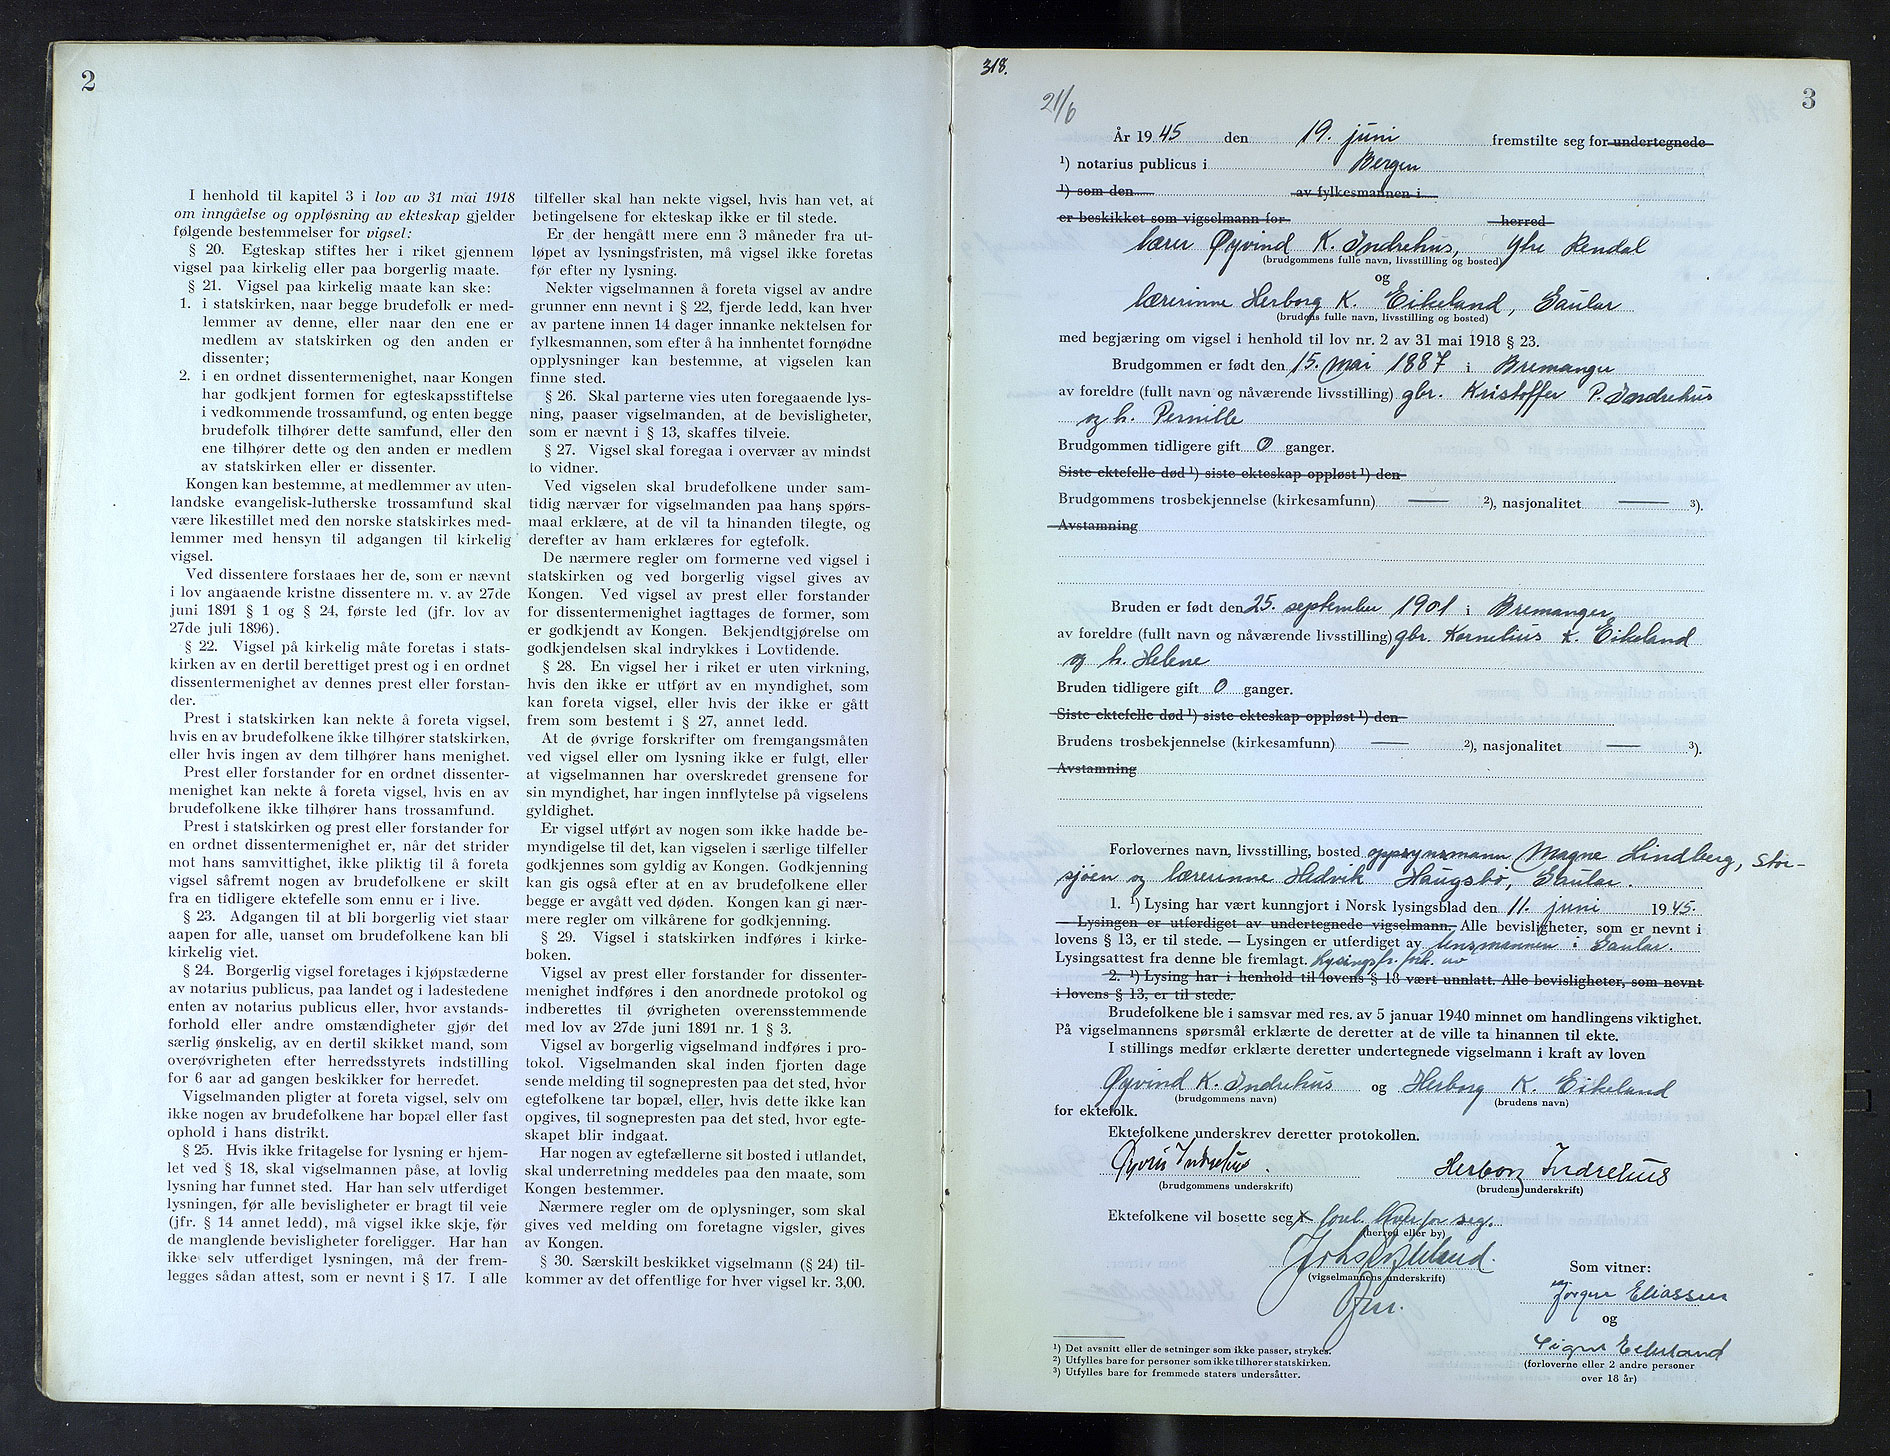 2
I henhold til kapitel 3 i lov av 31 mai 1918
om inngåelse og oppløsning av ekteskap gjelder
følgende bestemmelser for vigsel:
§ 20. Egteskap stiftes her i riket gjennem
vigsel paa kirkelig eller paa borgerlig maate.
§ 21. Vigsel paa kirkelig maate kan ske:
1. i statskirken, naar begge brudefolk er med-
lemmer av denne, eller naar den ene er
medlem av statskirken og den anden er
dissenter;
2. i en ordnet dissentermenighet, naar Kongen
har godkjent formen for egteskapsstiftelse
i vedkommende trossamfund, og enten begge
brudefolk tilhører dette samfund, eller den
ene tilhører dette og den anden er medlem
av statskirken eller er dissenter.
Kongen kan bestemme, at medlemmer av uten-
landske evangelisk-lutherske trossamfund skal
være likestillet med den norske statskirkes med-
lemmer med hensyn til adgangen til kirkelig
vigsel.
Ved dissentere forstaaes her de, som er nævnt
i lov angaaende kristne dissentere m. v. av 27de
juni 1891 § 1 og § 24, første led (jfr. lov av
27de juli 1896).
§ 22. Vigsel på kirkelig måte foretas i stats-
kirken av en dertil berettiget prest og i en ordnet
dissentermenighet av dennes prest eller forstan-
der.
Prest i statskirken kan nekte å foreta vigsel,
hvis en av brudefolkene ikke tilhører statskirken,
eller hvis ingen av dem tilhører hans menighet.
Prest eller forstander for en ordnet dissenter-
menighet kan nekte å foreta vigsel, hvis en av
brudefolkene ikke tilhører hans trossamfund.
Prest i statskirken og prest eller forstander for
en ordnet dissentermenighet er, når det strider
mot hans samvittighet, ikke pliktig til å foreta
vigsel såfremt nogen av brudefolkene er skilt
fra en tidligere ektefelle som ennu er i live.
§ 23. Adgangen til at bli borgerlig viet staar
aapen for alle, uanset om brudefolkene kan bli
kirkelig viet.
§ 24. Borgerlig vigsel foretages i kjøpstæderne
av notarius publicus, paa landet og i ladestedene
enten av notarius publicus eller, hvor avstands-
forhold eller andre omstændigheter gjør det
særlig ønskelig, av en dertil skikket mand, som
overøvrigheten efter herredsstyrets indstilling
for 6 aar ad gangen beskikker for herredet.
Vigselmanden pligter at foreta vigsel, selv om
ikke nogen av brudefolkene har bopæl eller fast
ophold i hans distrikt.
§ 25. Hvis ikke fritagelse for lysning er hjem-
let ved § 18, skal vigselmannen påse, at lovlig
lysning har funnet sted. Har han selv utferdiget
lysningen, før alle bevisligheter er bragt til veie
(jfr. § 14 annet ledd), må vigsel ikke skje, før
de manglende bevisligheter foreligger. Har han
ikke selv utferdiget lysningen, må der frem-
legges sådan attest, som er nevnt i § 17. I alle
tilfeller skal han nekte vigsel, hvis han vet, at
betingelsene for ekteskap ikke er til stede.
Er der hengått mere enn 3 måneder fra ut-
løpet av lysningsfristen, må vigsel ikke foretas
før efter ny lysning.
Nekter vigselmannen å foreta vigsel av andre
grunner enn nevnt i § 22, fjerde ledd, kan hver
av partene innen 14 dager innanke nektelsen for
fylkesmannen, som efter å ha innhentet fornødne
opplysninger kan bestemme, at vigselen kan
finne sted.
§ 26. Skal parterne vies uten foregaaende lys-
ning, paaser vigselmanden, at de bevisligheter,
som er nævnt i § 13, skaffes tilveie.
§ 27. Vigsel skal foregaa i overvær av mindst
to vidner.
Ved vigselen skal brudefolkene under sam-
tidig nærvær for vigselmanden paa hans spørs-
maal erklære, at de vil ta hinanden tilegte, og
derefter av ham erklæres for egtefolk.
De nærmere regler om formerne ved vigsel i
statskirken og ved borgerlig vigsel gives av
Kongen. Ved vigsel av prest eller forstander
for dissentermenighet iagttages de former, som
er godkjendt av Kongen. Bekjendtgjørelse om
godkjendelsen skal indrykkes i Lovtidende.
§ 28. En vigsel her i riket er uten virkning,
hvis den ikke er utført av en myndighet, som
kan foreta vigsel, eller hvis der ikke er gått
frem som bestemt i § 27, annet ledd.
At de øvrige forskrifter om fremgangsmåten
ved vigsel eller om lysning ikke er fulgt, eller
at vigselmannen har overskredet grensene for
sin myndighet, har ingen innflytelse på vigselens
gyldighet.
Er vigsel utført av nogen som ikke hadde be-
myndigelse til det, kan vigselen i særlige tilfeller
godkjennes som gyldig av Kongen. Godkjenning
kan gis også efter at en av brudefolkene eller
begge er avgått ved døden. Kongen kan gi nær-
mere regler om vilkårene for godkjenning.
§ 29. Vigsel i statskirken indføres i kirke-
boken.
Vigsel av prest eller forstander for dissenter-
menighet indføres i den anordnede protokol og
indberettes til øvrigheten overensstemmende
med lov av 27de juni 1891 nr. 1 § 3.
Vigsel av borgerlig vigselmand indføres i pro-
tokol. Vigselmanden skal inden fjorten dage
sende melding til sognepresten paa det sted, hvor
egtefolkene tar bopæl, eller, hvis dette ikke kan
opgives, til sognepresten paa det sted, hvor egte-
skapet blir indgaat.
Har nogen av egtefællerne sit bosted i utlandet,
skal underretning meddeles paa den maate, som
Kongen bestemmer.
Nærmere regler om de oplysninger, som skal
gives ved melding om foretagne vigsler, gives
av Kongen.
§ 30. Særskilt beskikket vigselmann (§ 24) til-
kommer av det offentlige for hver vigsel kr. 3,00.
318.
21/6
3
År 1945 den 19. juni fremstilte seg for undertegnede
¹) notarius publicus i Bergen
¹) som den av fylkesmannen i
er beskikket som vigselmann for herred
lærer Øyvind K. Indrehus, Ytre Rendal
(brudgommens fulle navn, livsstilling og bosted)
og
lærerinne Herborg K. Eikeland, Gaular
(brudens fulle navn, livsstilling og bosted)
med begjæring om vigsel i henhold til lov nr. 2 av 31 mai 1918 § 23.
Brudgommen er født den 15. mai 1887 i Bremanger
av foreldre (fullt navn og nåværende livsstilling) gbr. Kristoffer P. Indrehus
og h. Pernille
Brudgommen tidligere gift 0 ganger.
Siste ektefelle død ¹) siste ekteskap oppløst ¹) den
Brudgommens trosbekjennelse (kirkesamfunn) — ²), nasjonalitet — ³).
Avstamning
Bruden er født den 25. september 1901 i Bremanger
av foreldre (fullt navn og nåværende livsstilling) gbr. Kornelius K. Eikeland
og h. Helene
Bruden tidligere gift 0 ganger.
Siste ektefelle død ¹) siste ekteskap oppløst ¹) den
Brudens trosbekjennelse (kirkesamfunn) — ²), nasjonalitet — ³).
Avstamning
Forlovernes navn, livsstilling, bosted oppsynsmann Magne Lindberg, Stor-
sjøen og lærerinne Hedvik Haugsbø, Gaular.
1. ¹) Lysing har vært kunngjort i Norsk lysingsblad den 11. juni 1945.
Lysingen er utferdiget av undertegnede vigselmann. Alle bevisligheter, som er nevnt i
lovens § 13, er til stede. — Lysingen er utferdiget av lensmannen i Gaular.
Lysingsattest fra denne ble fremlagt. Lysingsfr. fork. av
2. ¹) Lysing har i henhold til lovens § 18 vært unnlatt. Alle bevisligheter, som nevnt
i lovens § 13, er til stede.
Brudefolkene ble i samsvar med res. av 5 januar 1940 minnet om handlingens viktighet.
På vigselmannens spørsmål erklærte de deretter at de ville ta hinannen til ekte.
I stillings medfør erklærte deretter undertegnede vigselmann i kraft av loven
Øyvind K. Indrehus og Herborg K. Eikeland
(brudgommens navn) (brudens navn)
for ektefolk.
Ektefolkene underskrev deretter protokollen.
Indrehus. Herborg Indrehus
(brudgommens underskrift) (brudens underskrift)
Ektefolkene vil bosette seg forel. hver for seg.
(herred eller by)
(vigselmannens underskrift)
Som vitner:
Jørgen Eliassen
og
Signe Eikeland
(forloverne eller 2 andre personer
over 18 år)
¹) Det avsnitt eller de setninger som ikke passer, strykes.
²) Utfylles bare for personer som ikke tilhører statskirken.
³) Utfylles bare for fremmede staters undersåtter.